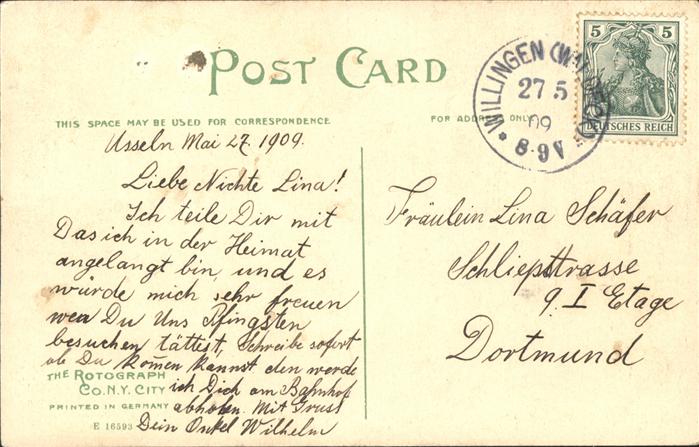 POST CARD
THIS SPACE MAY BE USED FOR CORRESPONDENCE.
FOR ADDRESS ONLY
WILLINGEN (WALDECK)
27 5
09
8-9V
5 5
DEUTSCHES REICH
Usseln Mai 27. 1909.
Liebe Nichte Lina!
Ich teile Dir mit
Das ich in der Heimat
angelangt bin, und es
würde mich sehr freuen
wen Du Uns Pfingsten
besuchen tättest, Schreibe sofort
ob Du komen kannst den werde
ich Dich am Bahnhof
abholen. Mit Gruss
Dein Onkel Wilhelm
THE ROTOGRAPH
CO. N.Y. CITY
PRINTED IN GERMANY
E 16593
Fräulein Lina Schäfer
Schliepstrasse
9. I Etage
Dortmund